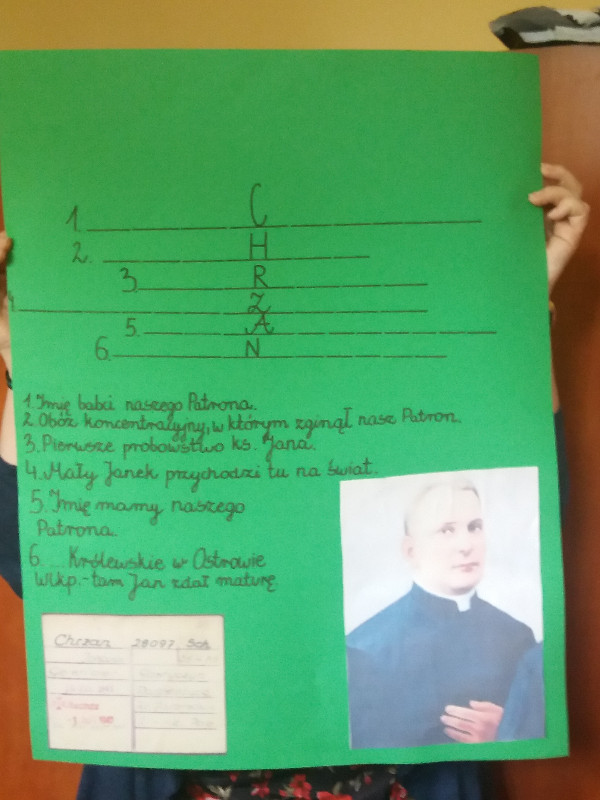 1. C
2. H
3. R
4. Z
5. A
6. N
1. Imię babci naszego Patrona.
2. Obóz koncentracyjny, w którym zginął nasz Patron.
3. Pierwsze probostwo ks. Jana.
4. Mały Janek przychodzi tu na świat.
5. Imię mamy naszego
Patrona.
6. ... Królewskie w Ostrowie
Wlkp.-tam Jan zdał maturę
Chrzan 28097